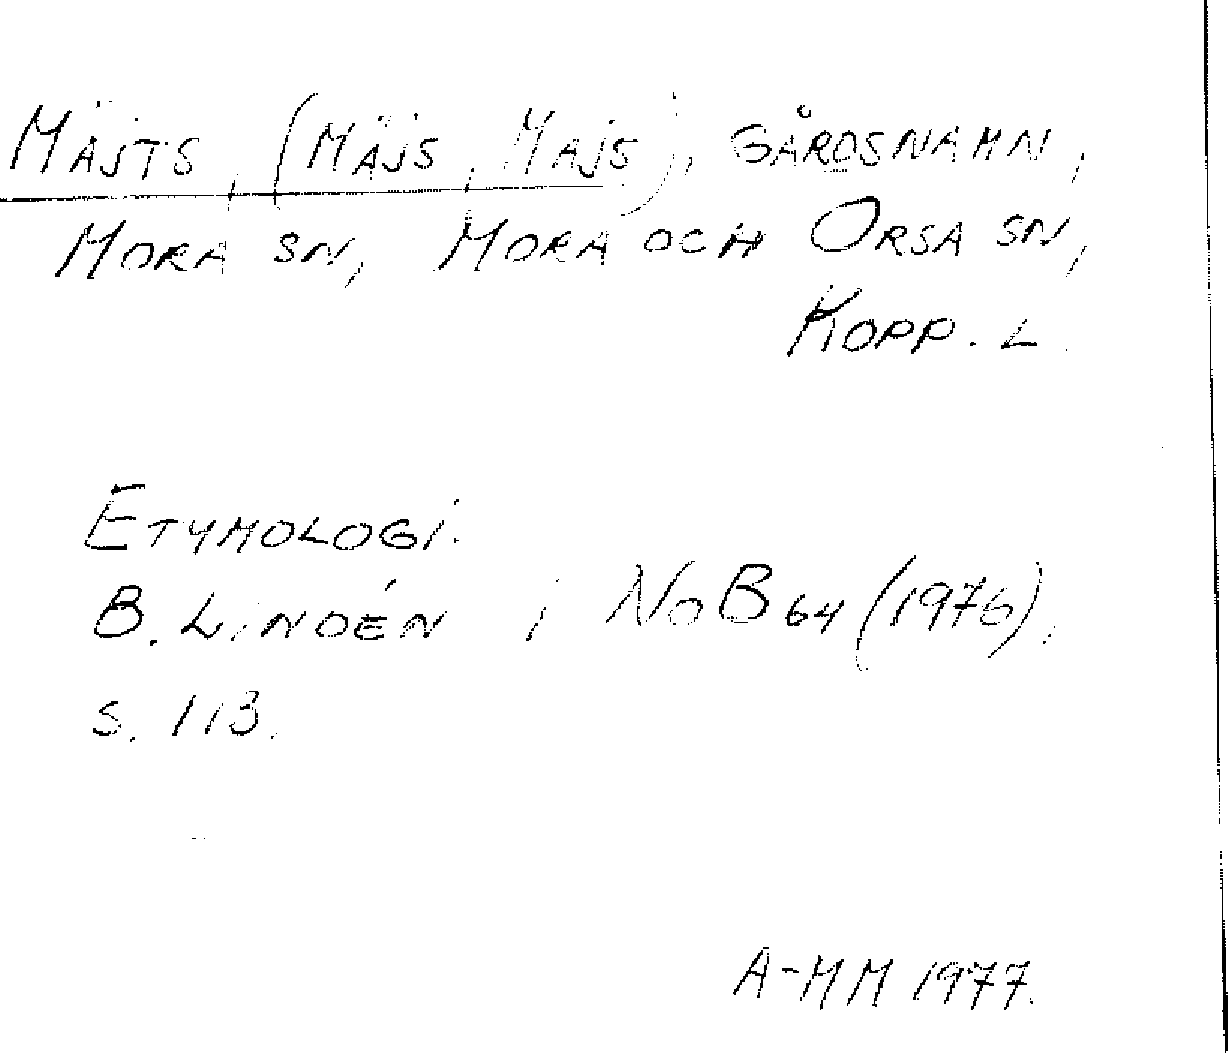 Mäjts, (Mäjs, Majs), gårdsnamn,
Mora sn, Mora och Orsa sn,
Kopp. l.
Etymologi.
B. Lindén i NoB 64 (1976),
s. 113.
A-MM 1977.